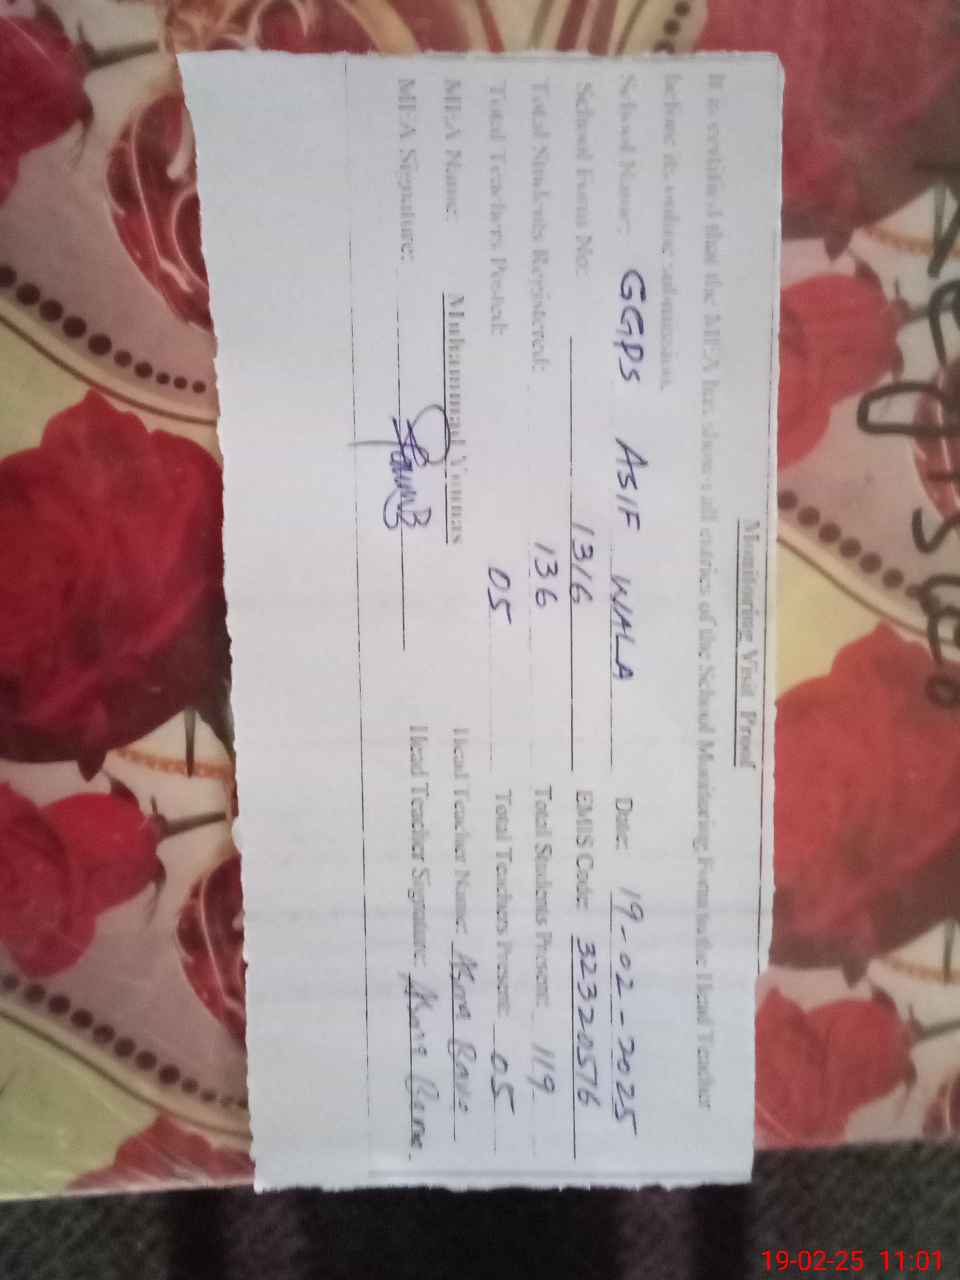 Monitoring Visit Proof
It is certified that the MEA has shown all entries of the School Monitoring Form to the Head Teacher
before its online submission.
School Name: GGPS ASIF WALA Date: 19-02-2025
School Form No: 1316 EMIS Code: 32320576
Total Students Registered: 136 Total Students Present: 119
Total Teachers Posted: 05 Total Teachers Present: 05
MEA Name: Muhammad Younas Head Teacher Name: Asma
MEA Signature: Head Teacher Signature: Asma
19-02-25 11:01